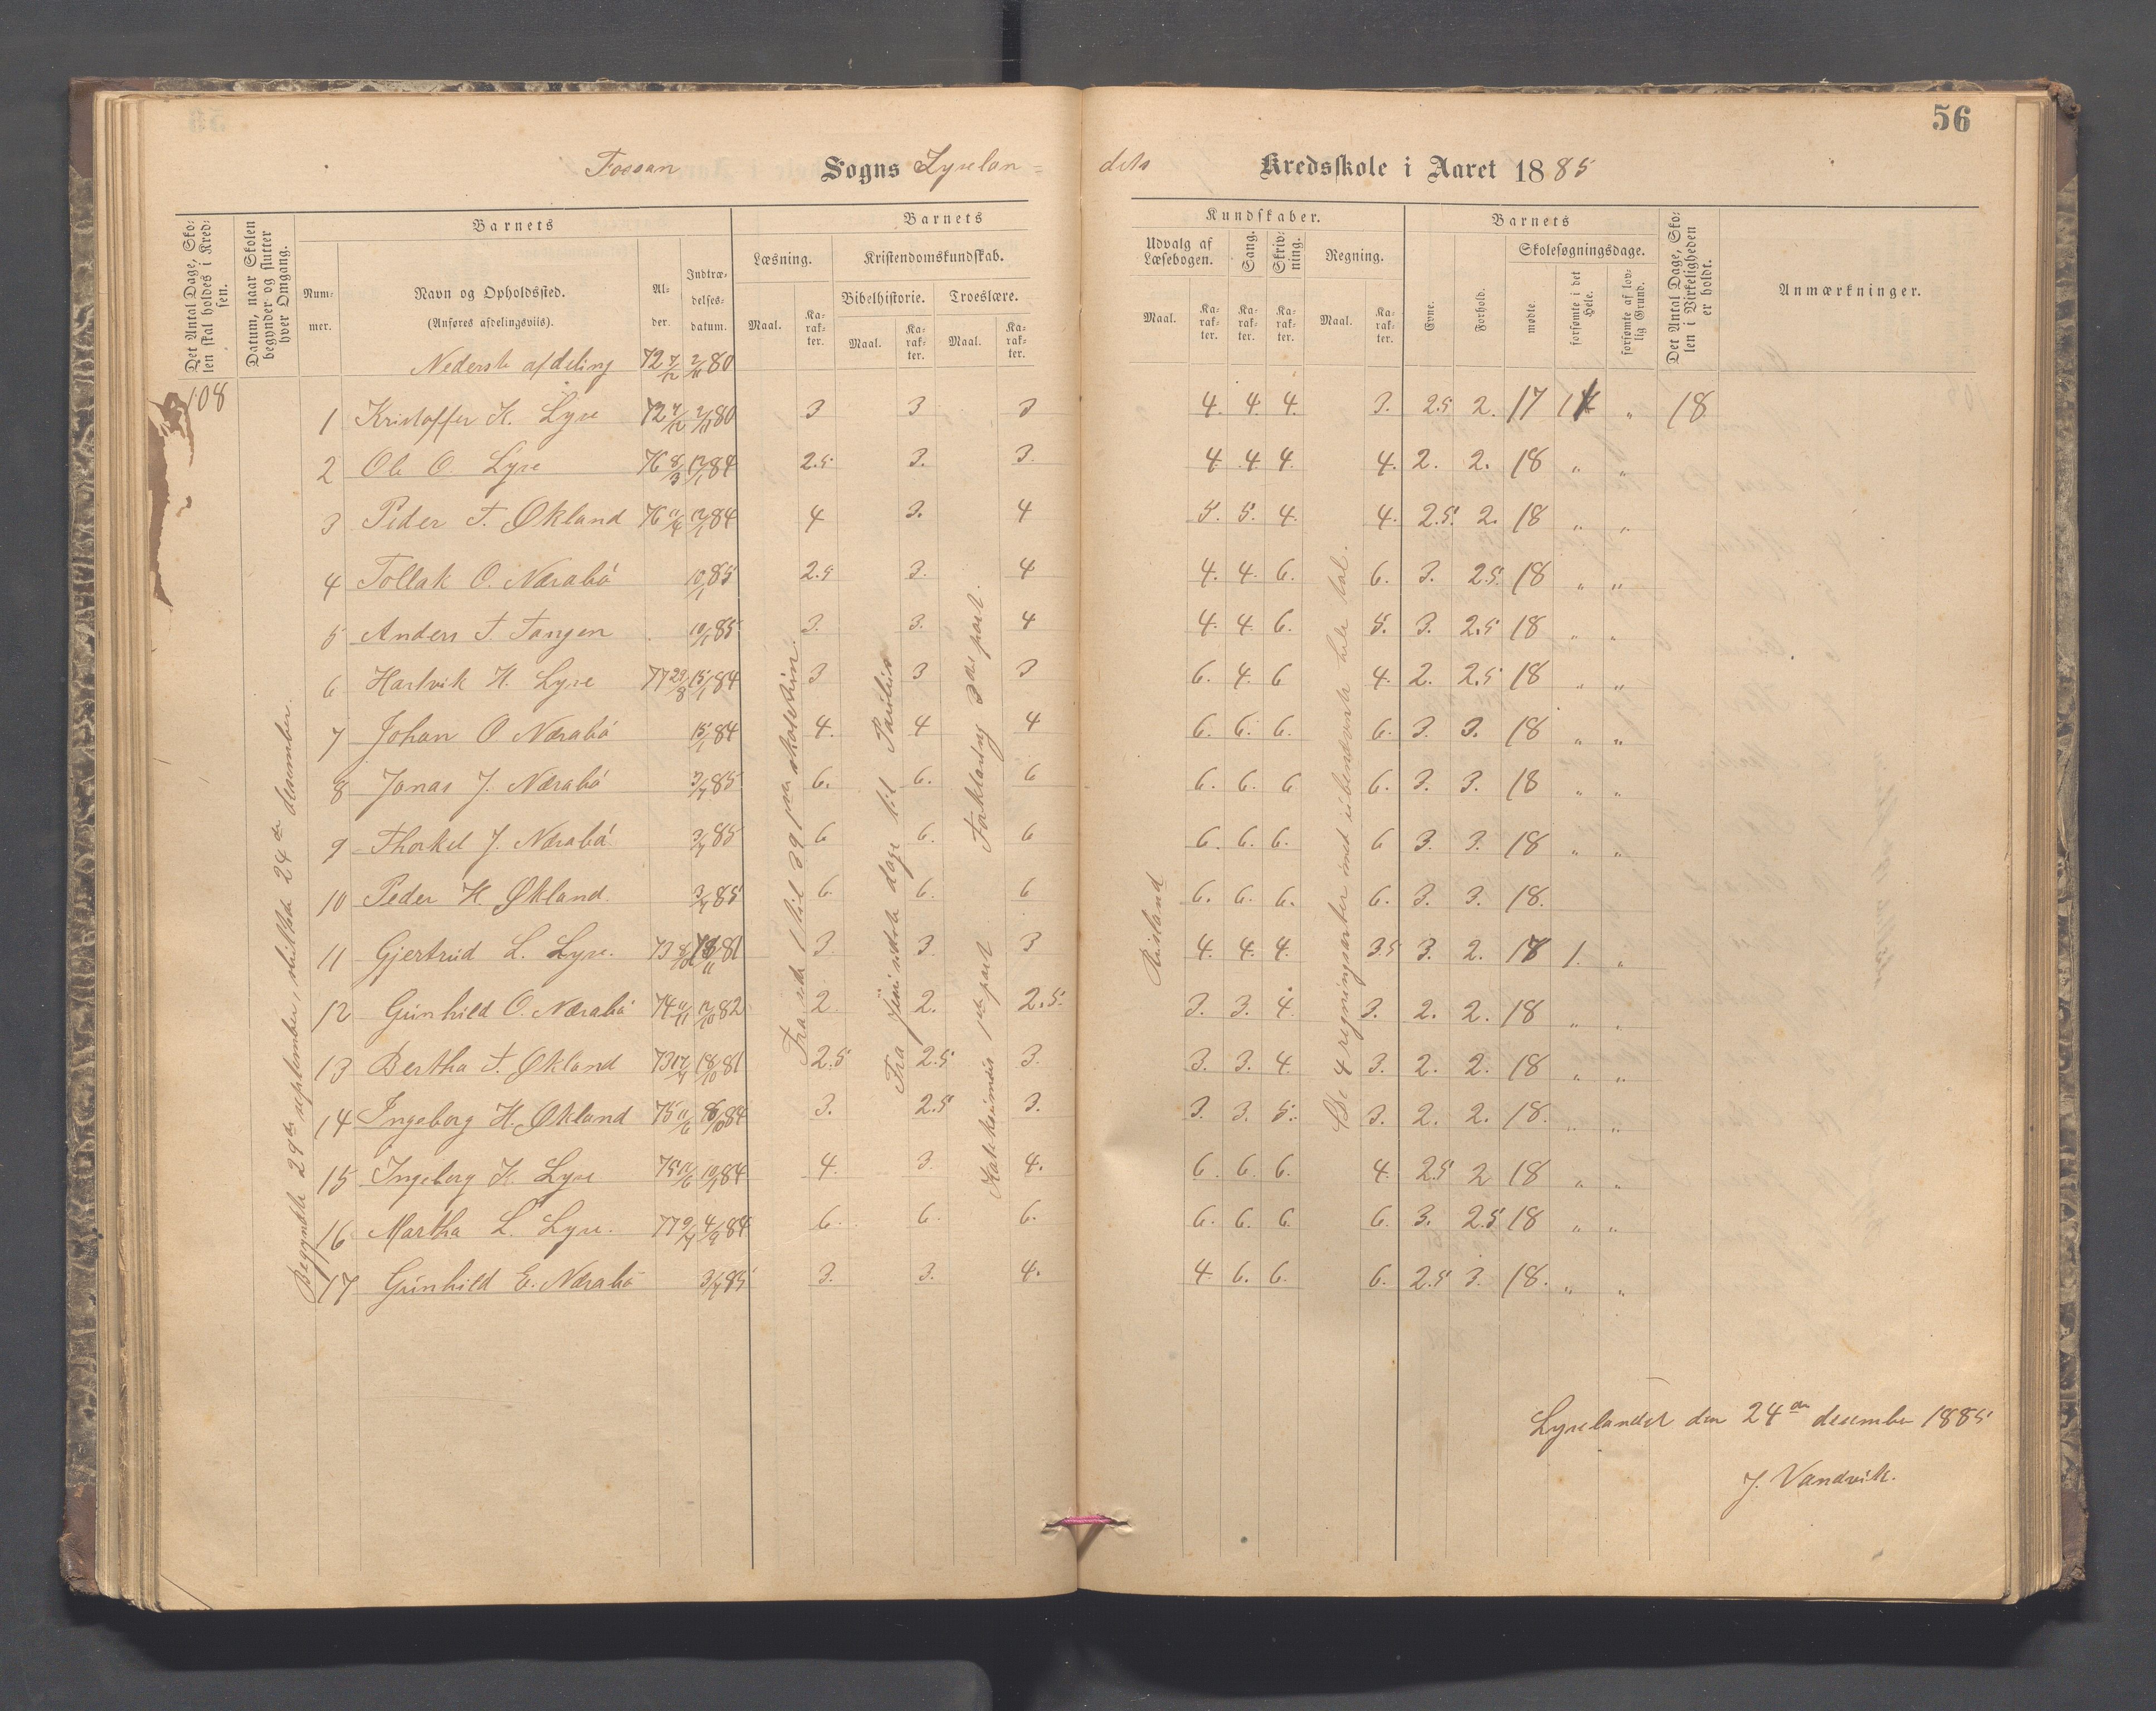 56
Fossan Sogns Lyselan=
dets Kredsskole i Aaret 1885
Det Antal Dage, Skolen skal holdes i Kredsen.
Datum, naar Skolen begynder og slutter hver Omgang.
Barnets
Nummer.
Navn og Opholdssted.
(Anføres afdelingsviis).
Alder.
Indtrædelsesdatum.
Barnets
Læsning.
Kristendomskundskab.
Bibelhistorie. Troeslære.
Maal. Karakter. Maal. Karakter. Maal. Karakter.
Kundskaber.
Udvalg af Læsebogen. Sang. Skrivning. Regning.
Maal. Karakter. Karakter. Karakter. Maal. Karakter.
Barnets
Evne. Forhold.
Skolesøgningsdage.
mødte forsømte i det Hele. forsømte af lovlig Grund.
Det Antal Dage, Skolen i Virkeligheden er holdt.
Anmærkninger.
Nederste afdeling 72 4/12 2/11 80
108
Begyndte 29de september, sluttede 24de desember.
1 Kristoffer K. Lyse 72 4/12 2/11 80 3 3 3 4. 4. 4. 3. 2.5 2. 17 1 „ 18
2 Ole O. Lyse 76 8/3 12/1 84 2.5 3. 3. 4 4. 4. 4. 2. 2. 18 „ „
3 Peder T. Økland 76 11/4 12/1 84 4 3. 4 5. 5. 4. 4. 2.5. 2. 18 „ „
4 Tollak O. Nærabö 10/1 85 2.5 3. 4 4. 4. 6. 6. 3. 2.5. 18 „ „
5 Anders T. Tangen 10/1 85 3. 3. 4 4. 4. 6. 5. 3. 2.5 18 „ „
6 Hartvik H. Lyse 77 29/8 15/1 84 3 3 3 6. 4. 6 4. 2. 2.5 18 „ „
7 Johan O. Nærabö 15/1 84 4. 4 4 6. 6. 6. 6. 3. 3. 18 „ „
8 Jonas J. Nærabö 3/7 85 6. 6. 6 6. 6. 6 6. 3. 3. 18 „ „
9 Thorkel J. Nærabö 3/7 85 6 6. 6 6. 6. 6. 6 3. 3. 18 „ „
10 Peder H. Økland. 3/7 85 6. 6. 6 6. 6. 6. 6. 3. 3. 18.
11 Gjertrud L. Lyse. 73 81 3. 3. 3 4. 4. 4. 3.5 3. 2. 17 1. „
12 Gunhild O. Nærabö 74 11/11 12/10 82 2. 2. 2.5. 3. 3. 4. 3. 2. 2. 18 „ „
13 Bertha T. Økland 73 17/7 18/10 81 2.5 2.5 3. 3. 3. 4. 3. 2. 2. 18 „ „
14 Ingeborg H. Økland 75 11/6 84 3. 2.5 3. 3. 3. 5. 3. 2. 2. 18. „ „
15 Ingeborg K. Lyse 75 84 4. 3. 4. 6. 6. 6. 4. 2.5 2 18 „ „
16 Martha L. Lyse. 77 9/7 4/8 84 6. 6. 6. 6. 6. 6. 6. 3. 2.5 18 „ „
17 Gunhild E. Nærabö 3/7 85 3. 3. 4. 4. 6. 6. 6. 2.5 3. 18. „ „
Fra side 1 til 39
Fra til
Katekismus 1ste part Forklaring 3die part.
De 4 regningsarter med ubenævnte hele tal.
Lyselandet den 24de desember 1885
J. Vandvik.